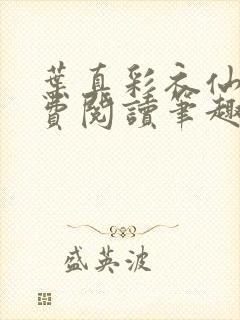 葉真彩衣仙
費閱讀筆趣
盛英波